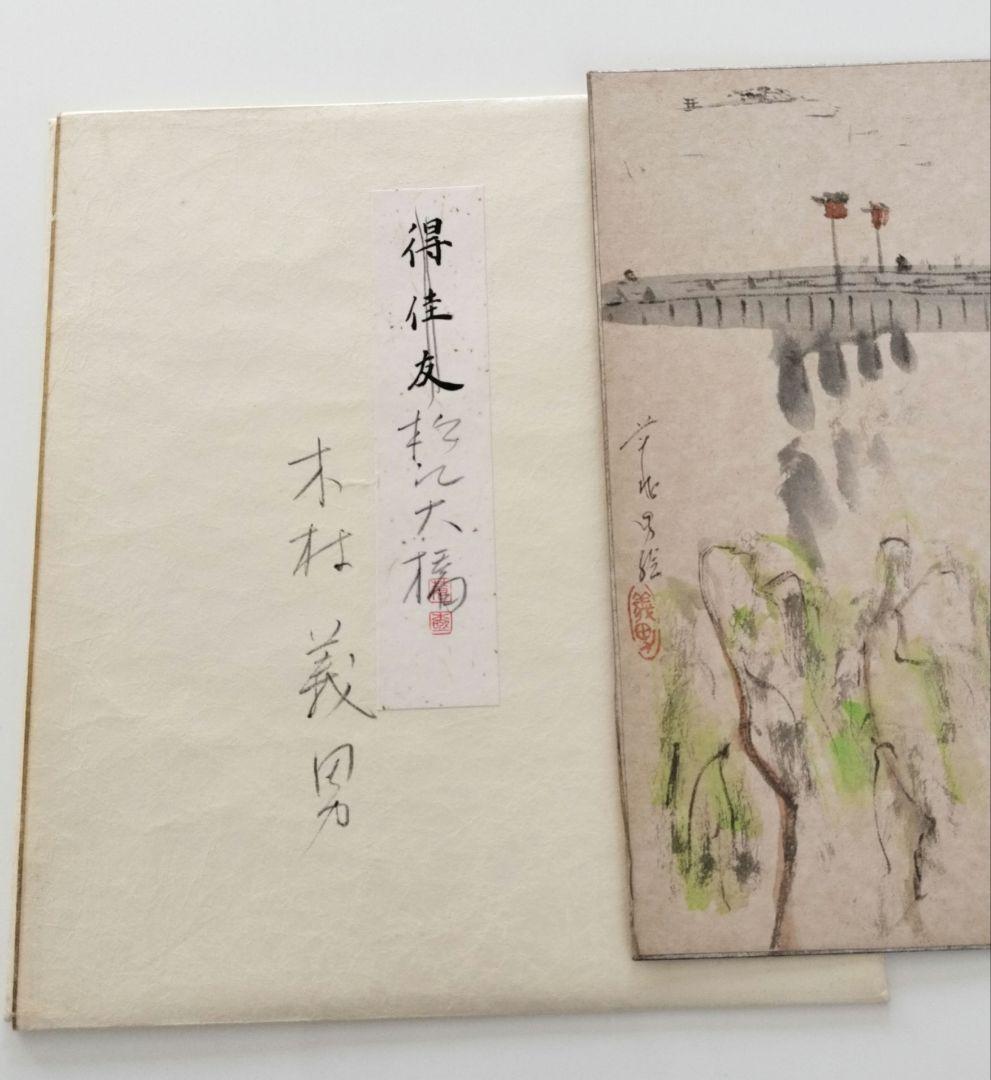 義男
得佳友
松江大橋
木村義男